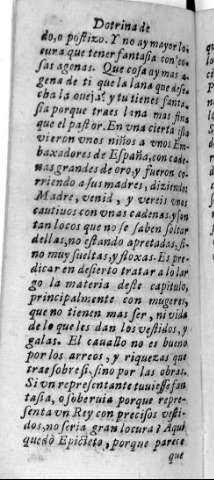 Dotrina de
do, o postizo. Y no ay mayor lo-
cura que tener fantasia con co-
sas agenas. Que cosa ay mas a-
gena de ti que la lana que dese-
cha la oueja? y tu tienes fanta-
sia porque traes lana mas fina
que el pastor. En vna cierta isla
vieron vnos niños a vnos Em-
baxadores de España, con cade-
nas grandes de oro, y fueron co-
rriendo a sus madres, diziendo
Madre, venid, y vereis vnos
cautiuos con vnas cadenas, y son
tan locos que no se saben soltar
dellas, no estando apretadas, si-
no muy sueltas, y floxas. Es pre-
dicar en desierto tratar a lo lar
go la materia deste capitulo,
principalmente con mugeres,
que no tienen mas ser, ni vida
de lo que les dan los vestidos, y
galas. El cauallo no es bueno
por los arreos, y riquezas que
trae sobre si, sino por las obras.
Si vn representante tuuiesse fan
tasia, o soberuia porque repre-
senta vn Rey con preciosos vesti-
dos, no seria gran locura? Aqui
quedò Epicteto, porque parece
que